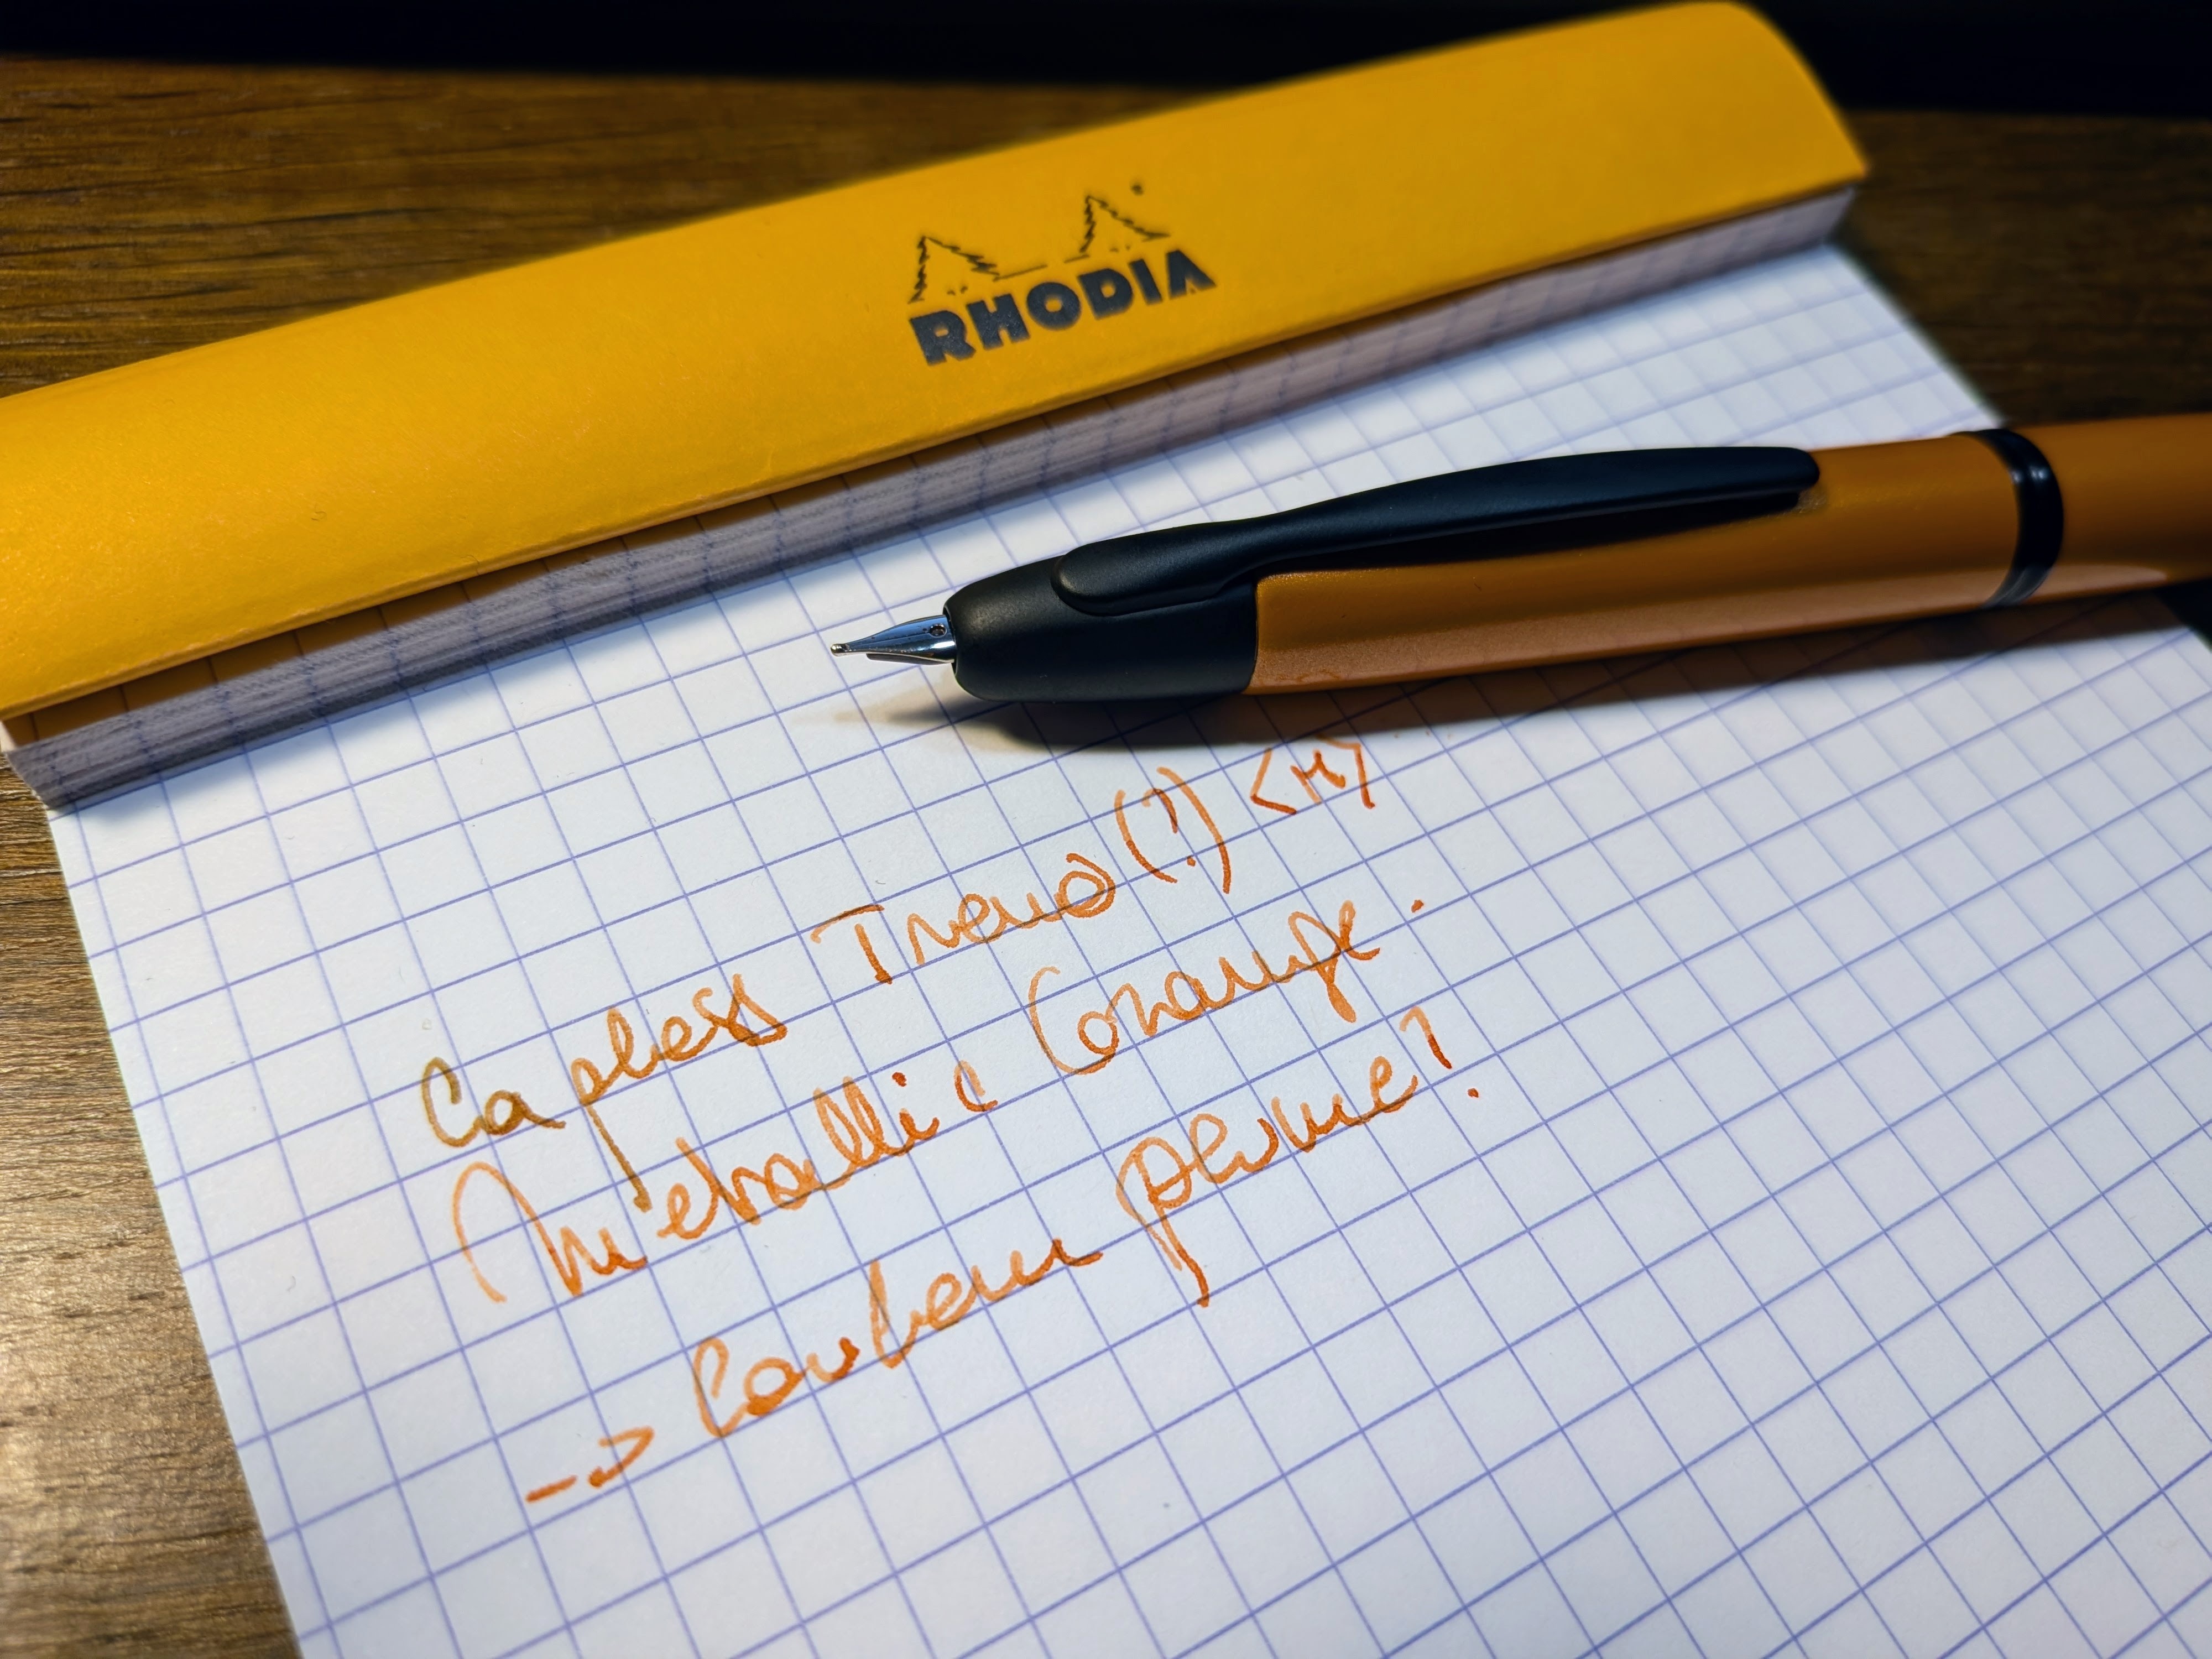 RHODIA
Capless Trend (?) <M>
Metallic Orange.
-> Couleur plume?